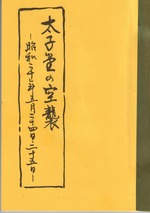 太子堂の空襲
-昭和二十年五月二十四日・二十五日-